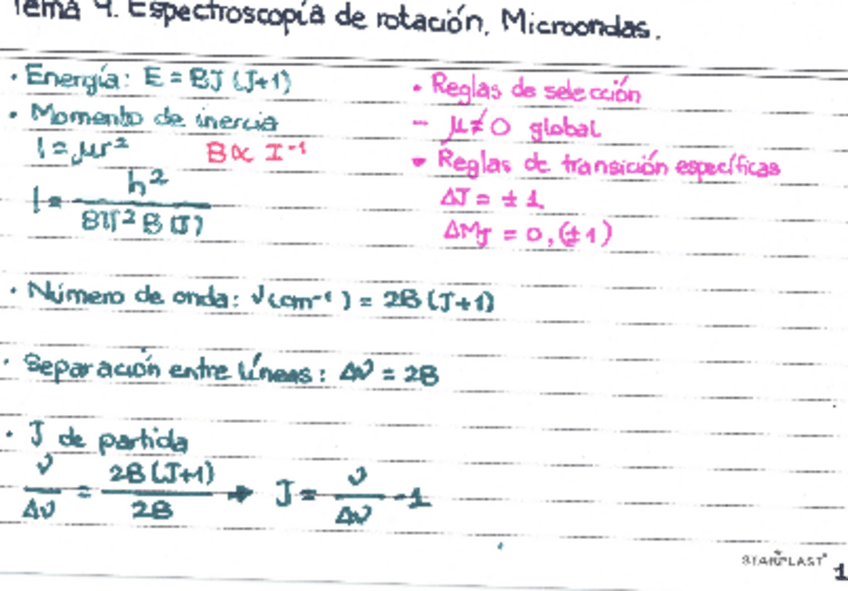 Tema 4. Espectroscopía de rotación. Microondas.
· Energía: E = BJ (J+1)
· Momento de inercia
I = μr² B∝ I⁻¹
I = h² / 8π² B (J)
· Reglas de selección
- μ≠0 global
- Reglas de transición específicas
ΔJ = ±1
ΔMJ = 0, (±1)
· Número de onda: ν (cm⁻¹) = 2B (J+1)
· Separación entre líneas: Δν = 2B
· J de partida
ν / Δν = 2B (J+1) / 2B → J = ν / Δν - 1
STARPLAST
1